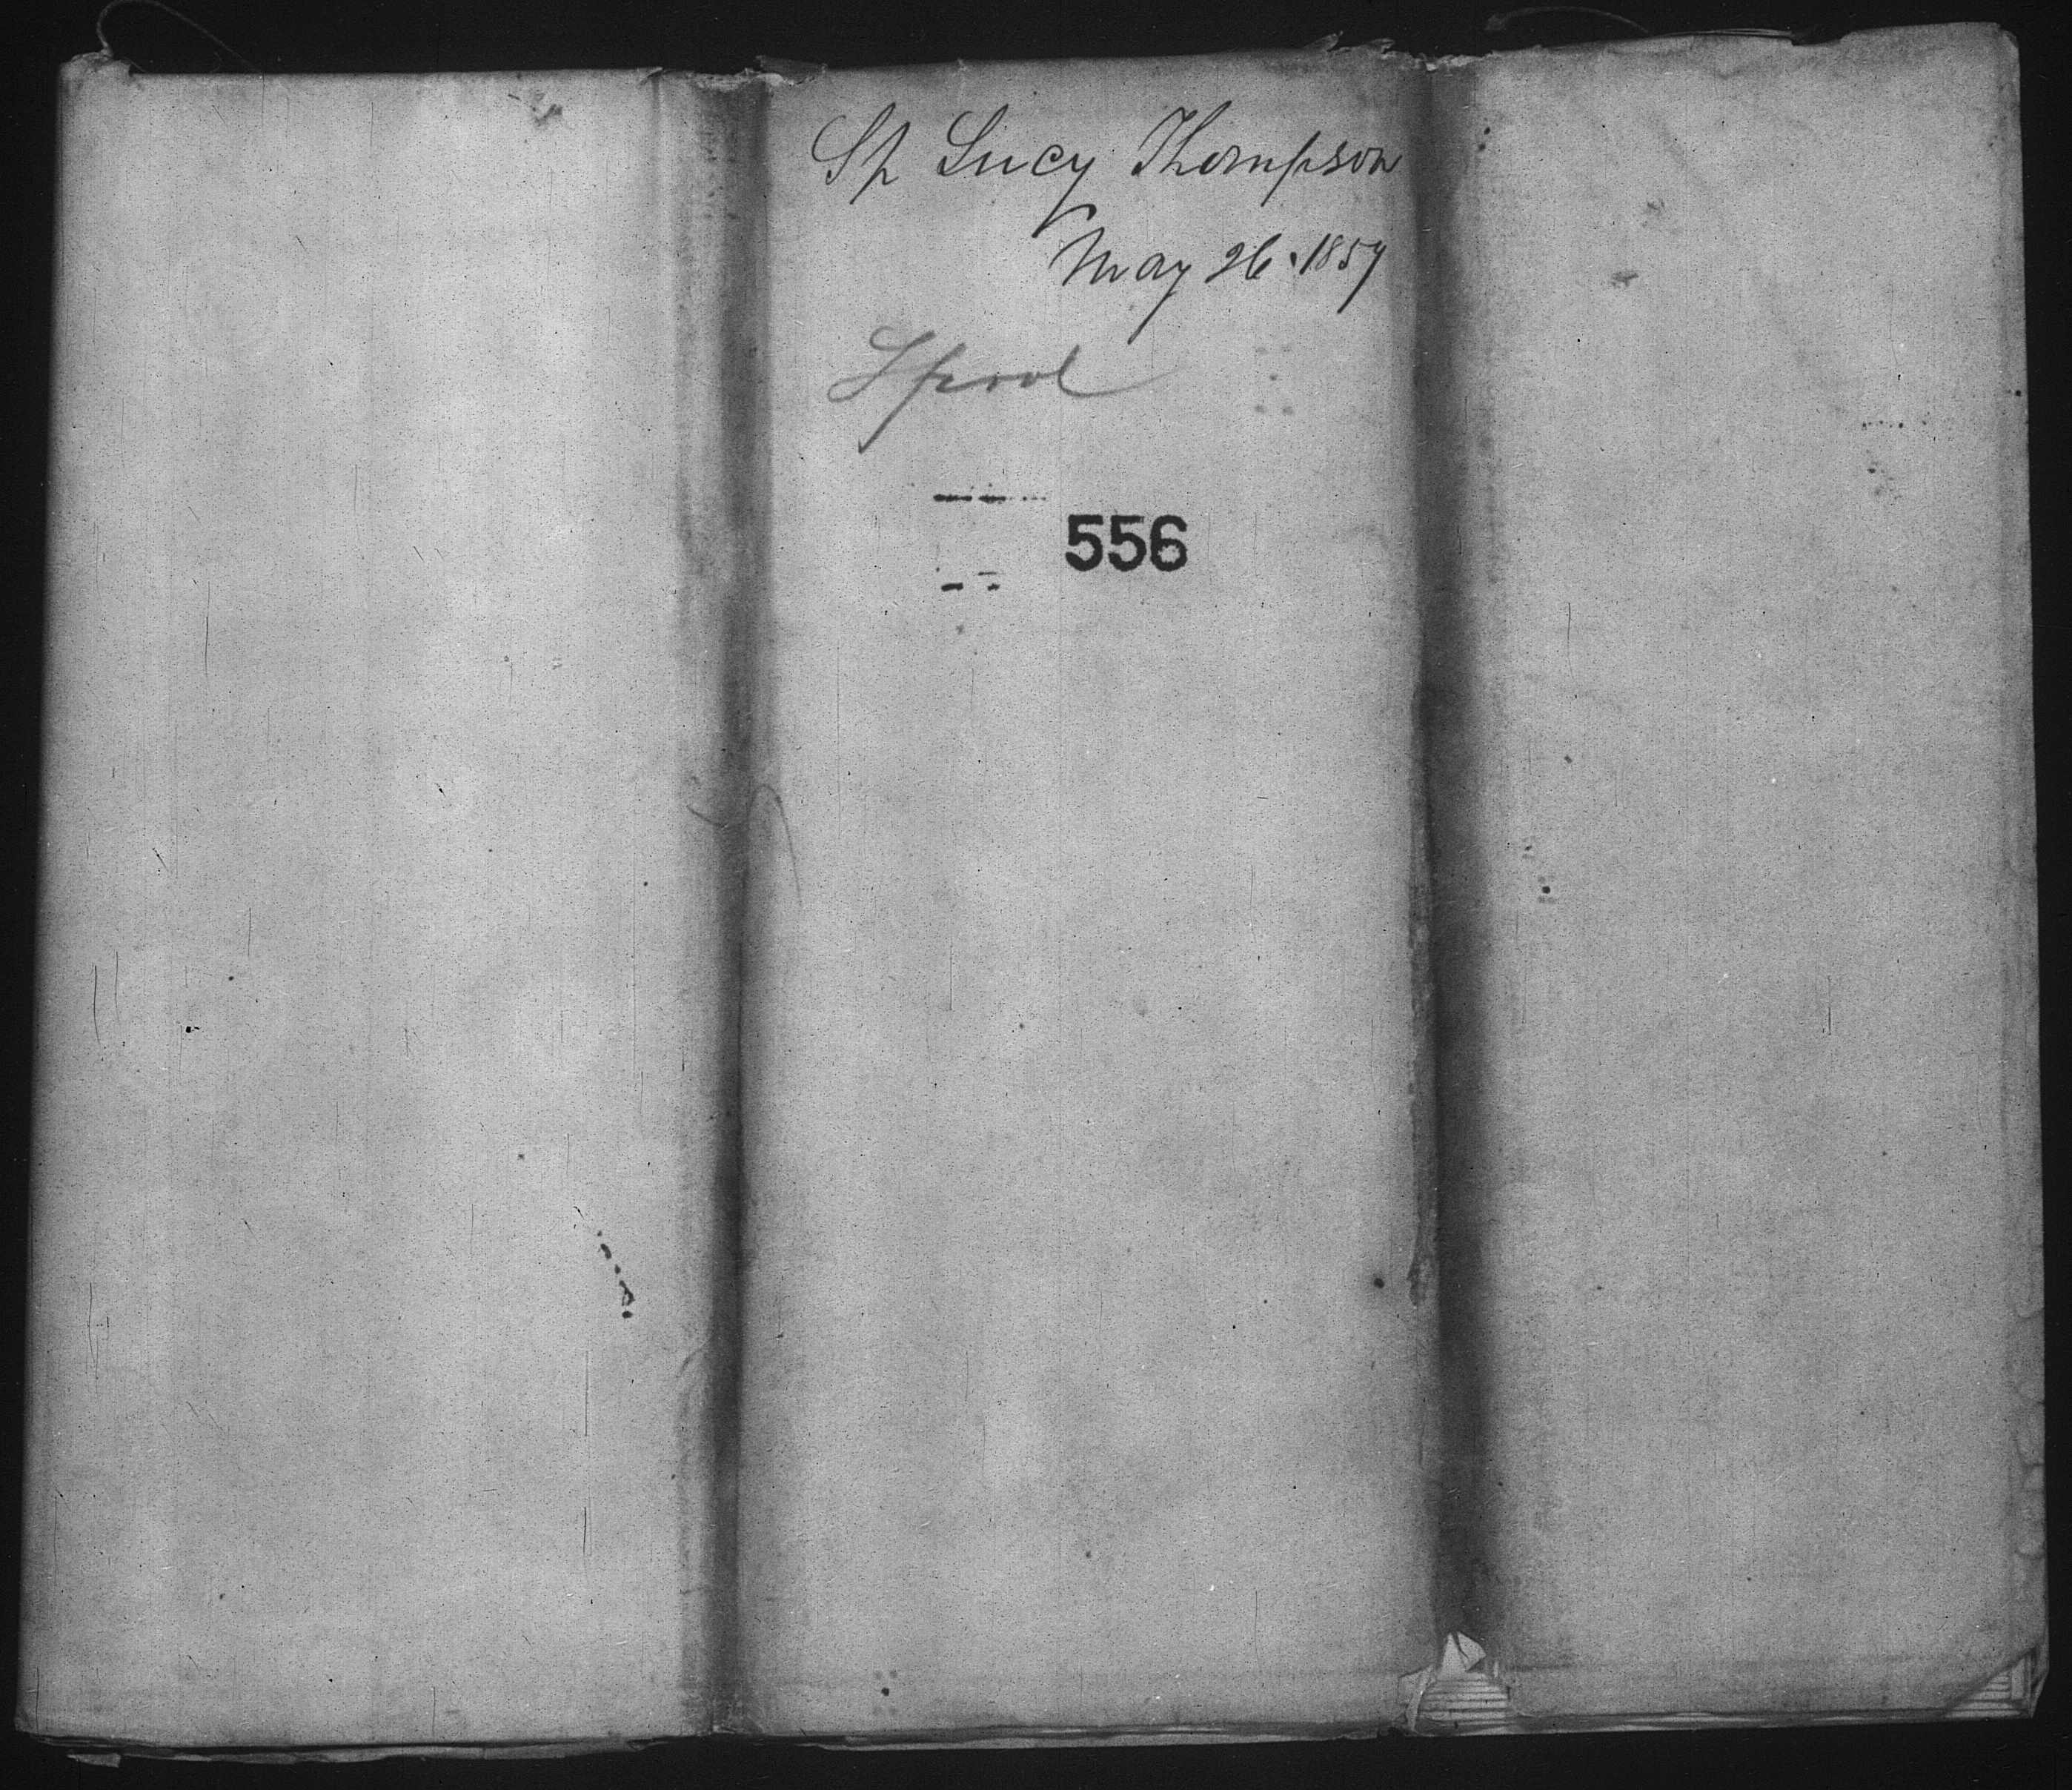 Sp Lucy Thompson
May 26. 1857
556